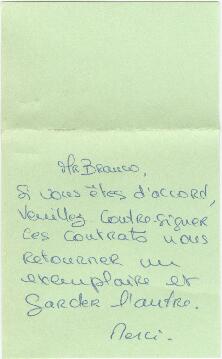 Mr Branco,
Si vous êtes d'accord,
Veuillez contre-signer
ces contrats nous
retourner un
exemplaire et
garder l'autre.
Merci.